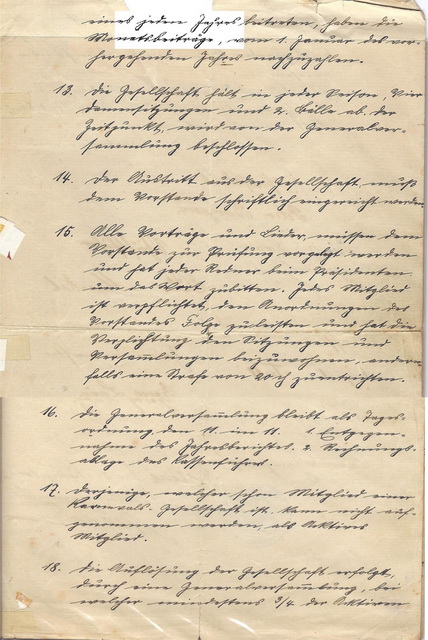 eines jeden Jahres beitreten, haben die
Monatsbeiträge, vom 1. Januar des vor-
hergehenden Jahres nachzuzahlen.
13. Die Gesellschaft hält in jeder Saison, Vier
Damensitzungen und 2. Bälle ab, der
Zeitpunkt, wird von der Generalver-
sammlung beschlossen.
14. Der Austritt aus der Gesellschaft, muß
dem Vorstande schriftlich eingereicht werden.
15. Alle Vorträge und Lieder, müssen dem
Vorstande zur Prüfung vorgelegt werden
und hat jeder Redner beim Präsidenten
um das Wort zubitten. Jedes Mitglied
ist verpflichtet, den Anordnungen des
Vorstandes Folge zuleisten und hat die
Verpflichtung den Sitzungen und
Versammlungen beizuwohnen, andern-
falls eine Strafe von 20 zuentrichten.
16. Die Generalversammlung bleibt als Tages-
ordnung den 11. im 11. 1. Entgegen-
nahme des Jahresberichtes. 2. Rechnungs-
ablage des Kassenführer.
17. Derjenige, welcher schon Mitglied einer
Karnevals. Gesellschaft ist, kann nicht auf-
genommen werden, als Aktives
Mitglied.
18. Die Auflösung der Gesellschaft erfolgt,
durch eine Generalversammlung, bei
welcher mindestens 3/4 der Aktiven